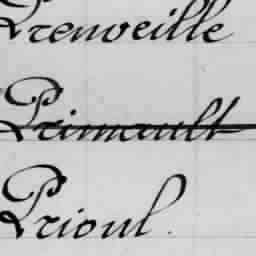 Preuveille
Primault
Prioul.